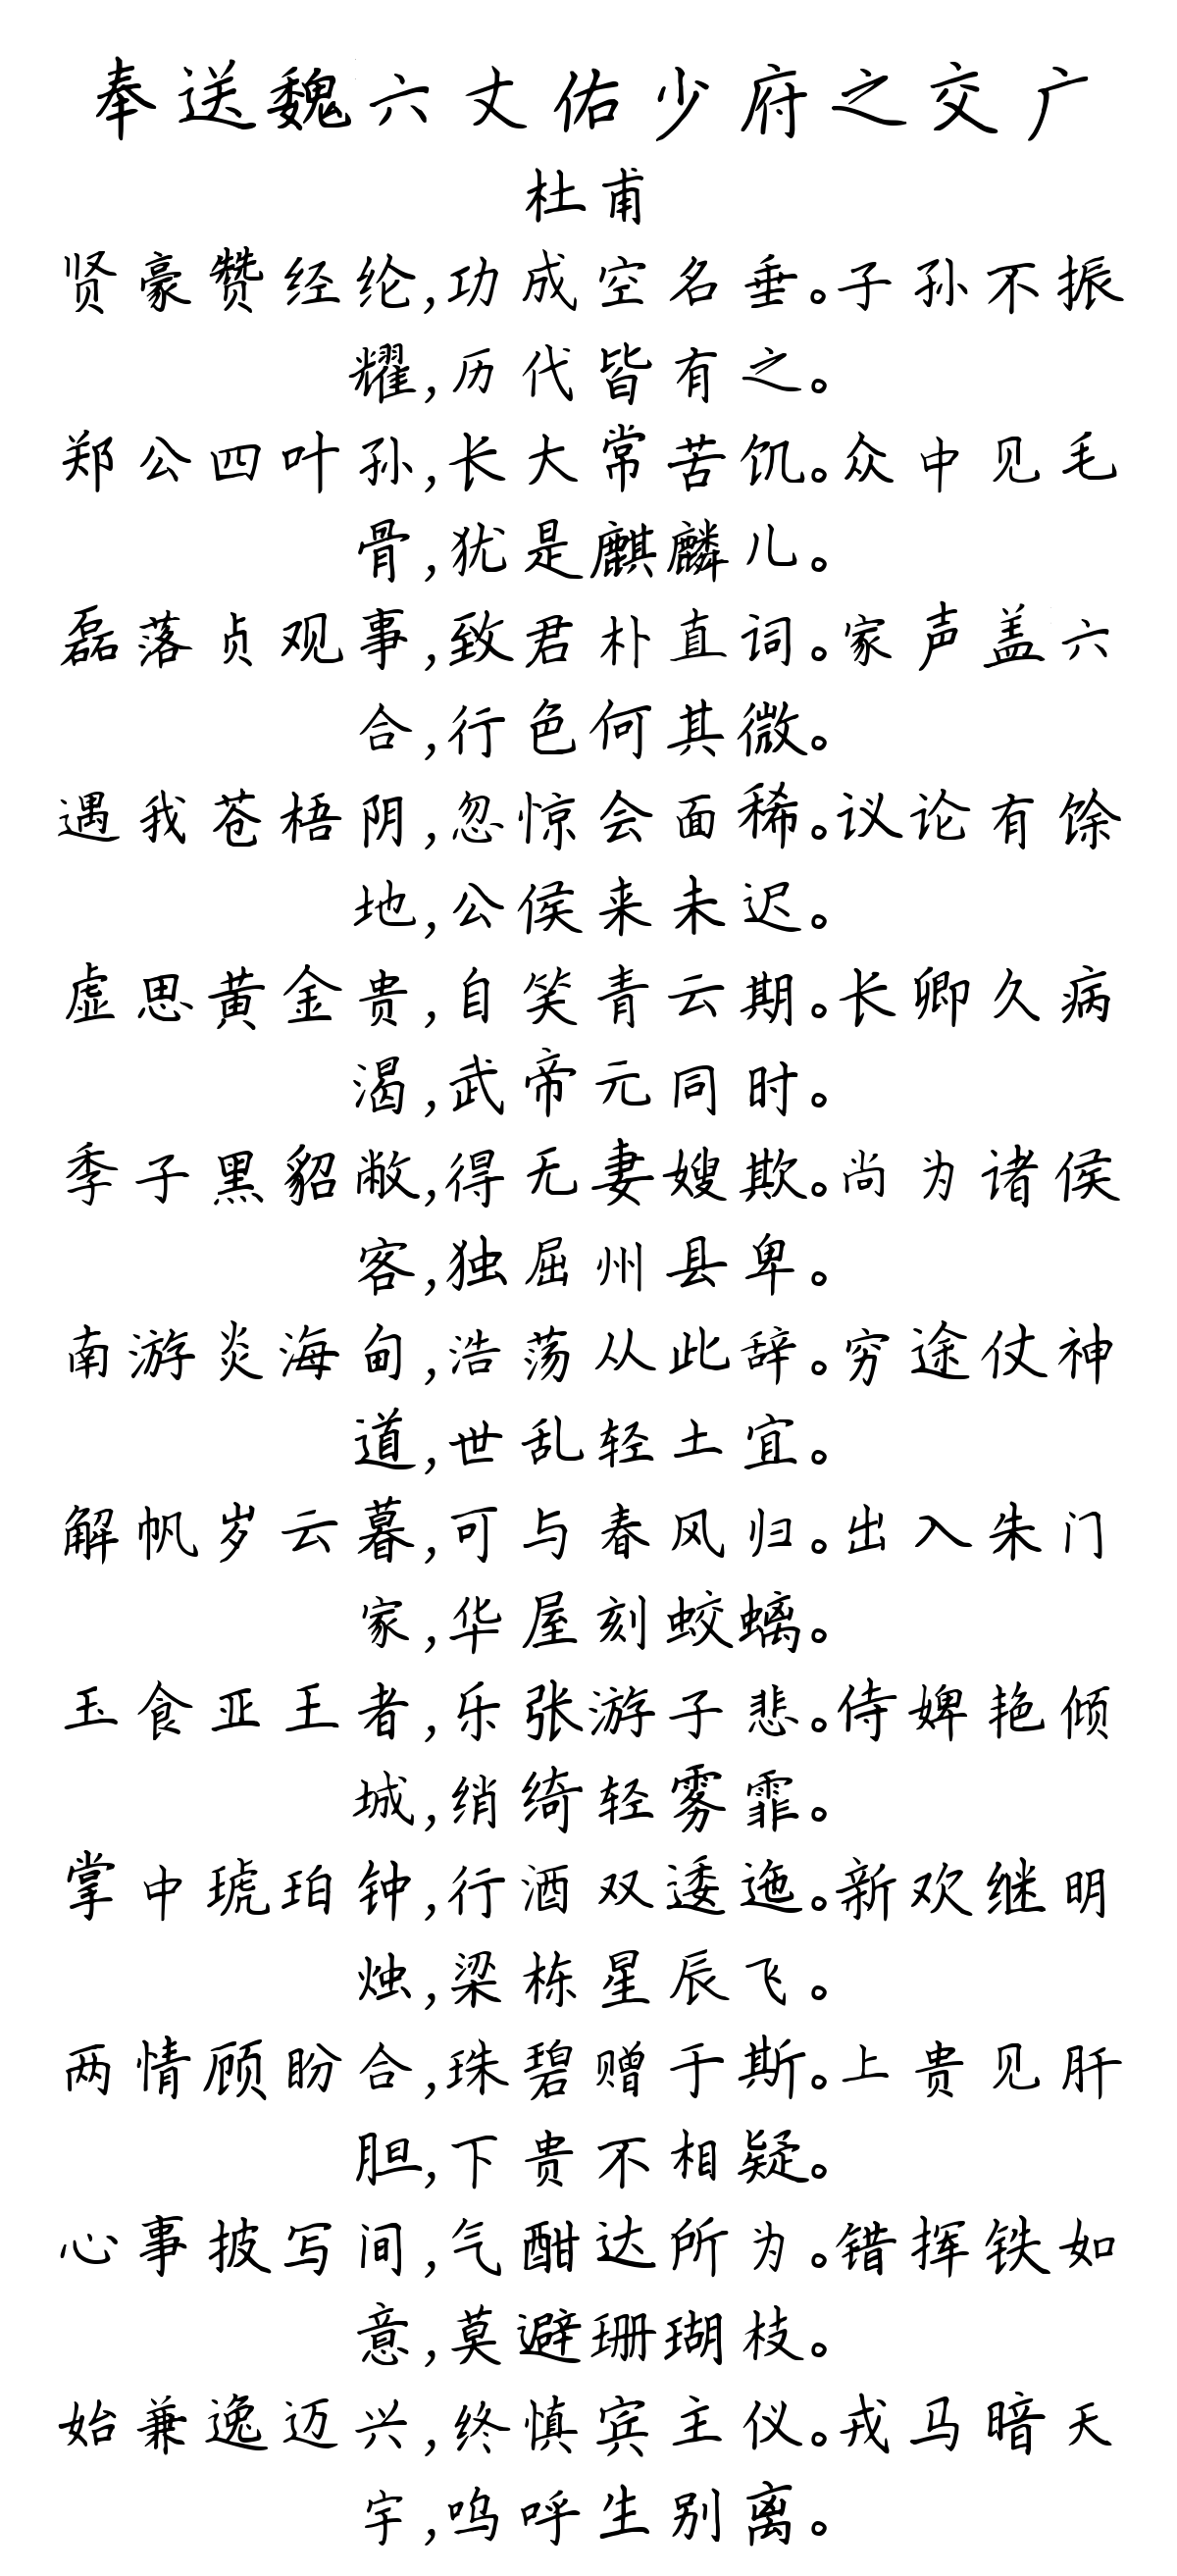 奉送魏六丈佑少府之交广
杜甫
贤豪赞经纶,功成空名垂。子孙不振
耀,历代皆有之。
郑公四叶孙,长大常苦饥。众中见毛
骨,犹是麒麟儿。
磊落贞观事,致君朴直词。家声盖六
合,行色何其微。
遇我苍梧阴,忽惊会面稀。议论有馀
地,公侯来未迟。
虚思黄金贵,自笑青云期。长卿久病
渴,武帝元同时。
季子黑貂敝,得无妻嫂欺。尚为诸侯
客,独屈州县卑。
南游炎海甸,浩荡从此辞。穷途仗神
道,世乱轻土宜。
解帆岁云暮,可与春风归。出入朱门
家,华屋刻蛟螭。
玉食亚王者,乐张游子悲。侍婢艳倾
城,绡绮轻雾霏。
掌中琥珀钟,行酒双逶迤。新欢继明
烛,梁栋星辰飞。
两情顾盼合,珠碧赠于斯。上贵见肝
胆,下贵不相疑。
心事披写间,气酣达所为。错挥铁如
意,莫避珊瑚枝。
始兼逸迈兴,终慎宾主仪。戎马暗天
宇,呜呼生别离。